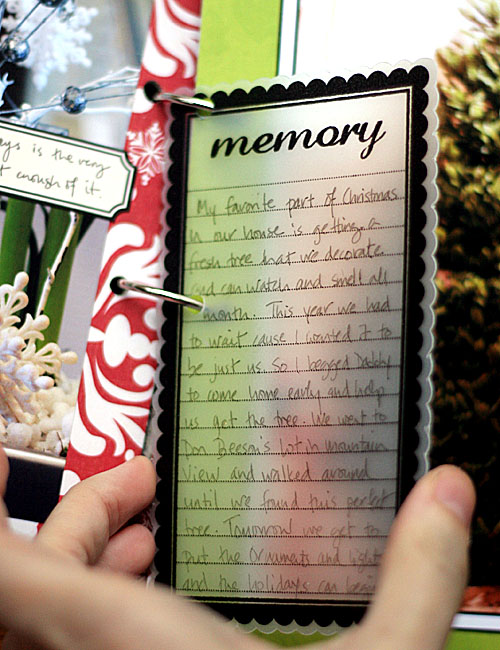 ays is the very
t enough of it.
memory
My favorite part of Christmas
in our house is getting a
fresh tree that we decorate
and can watch and smell all
month. This year we had
to wait cause I wanted it to
be just us. So I begged Daddy
to come home early and help
us get the tree. We went to
Don Beeson's lot in mountain
View and walked around
until we found this perfect
tree. Tomorrow we get to
put the ornaments and lights
and the holidays can begin